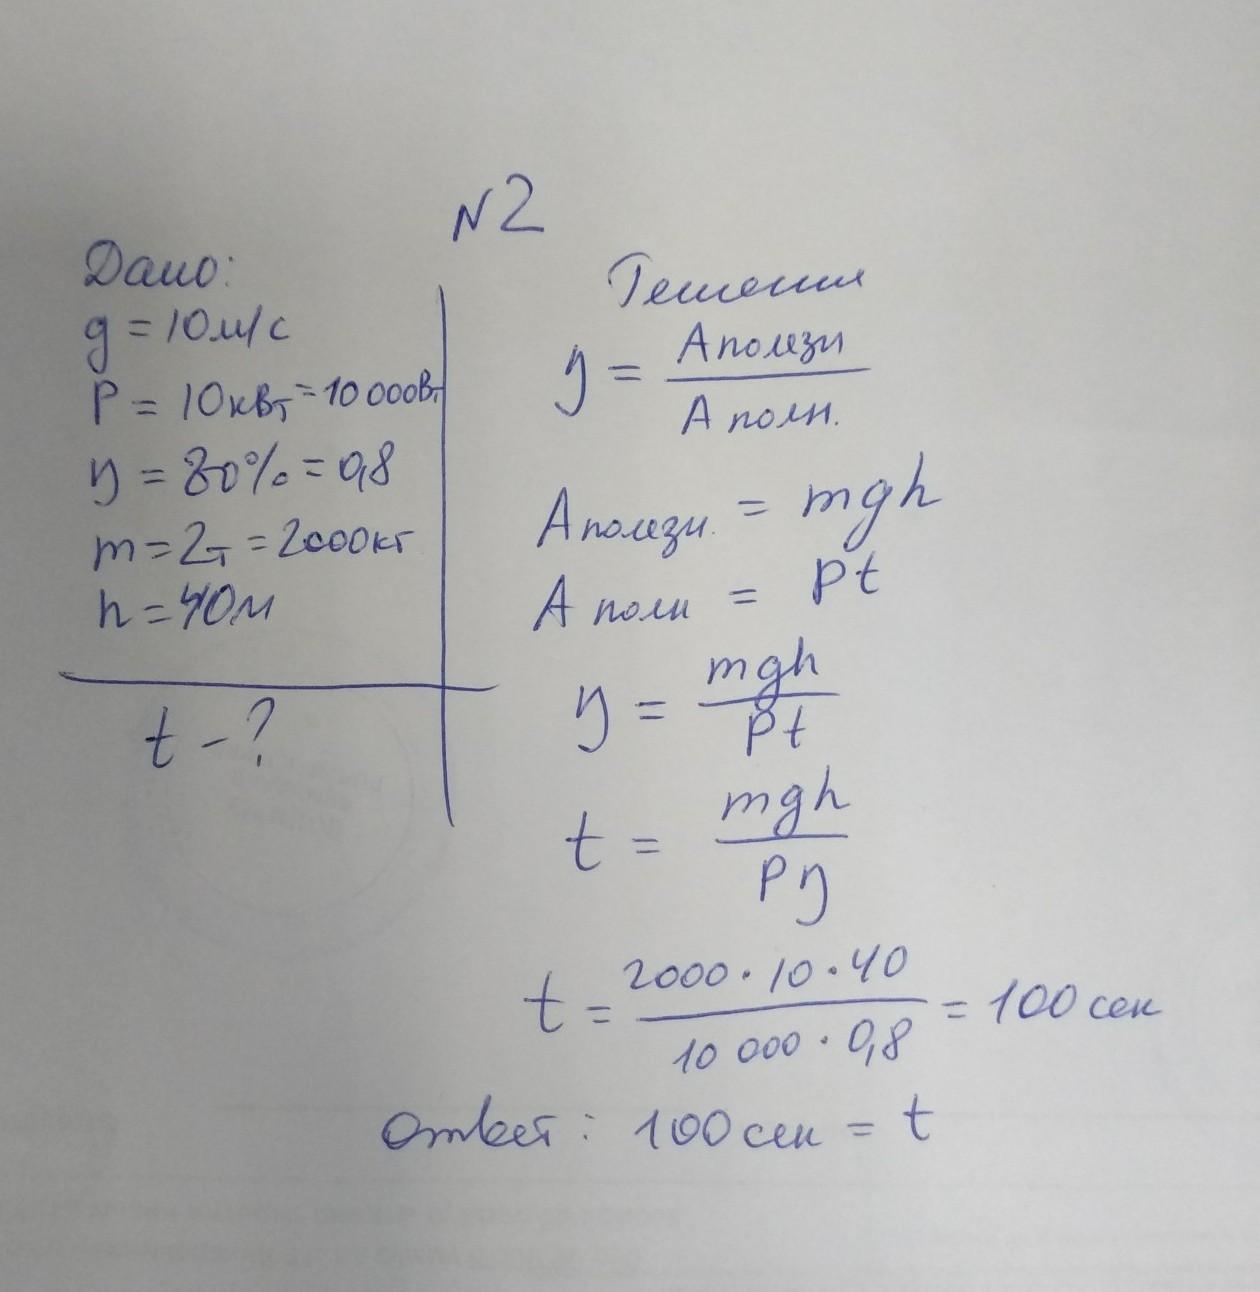 N2
Дано:
g = 10м/с
P = 10кВт = 10 000Вт
η = 80% = 0,8
m = 2т = 2000кг
h = 40м
t - ?
Решения
η = Аполезн / Аполн.
Аполезн. = mgh
Аполн = Pt
η = mgh / Pt
t = mgh / Pη
t = 2000 · 10 · 40 / 10 000 · 0,8 = 100 сек
Ответ: 100 сек = t